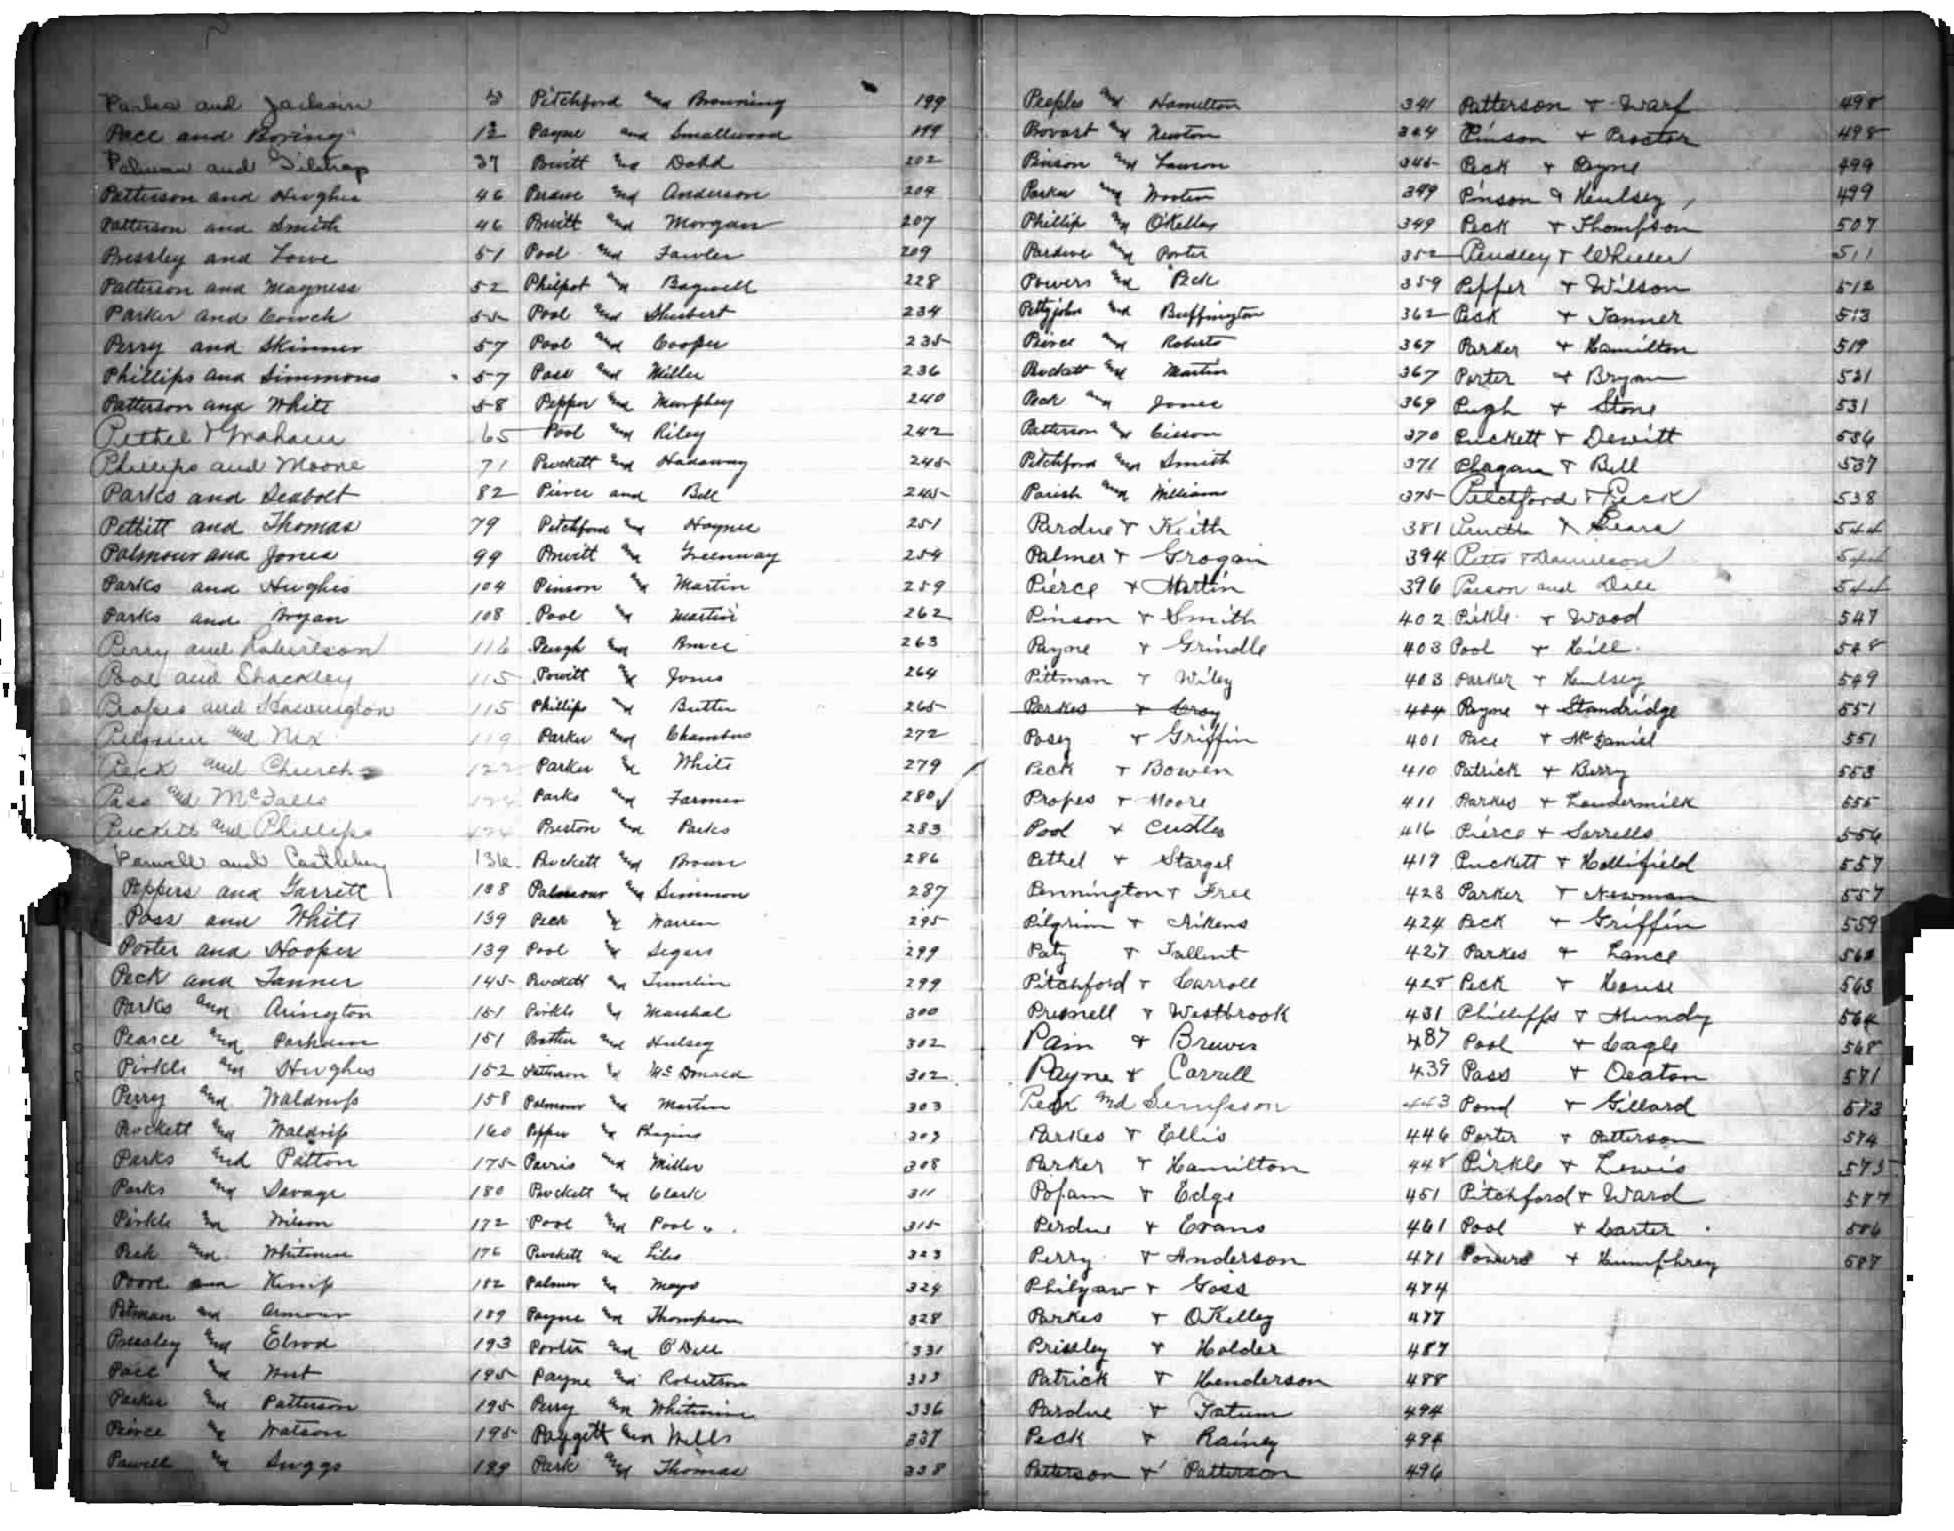 Parks and Jackson 3
Pace and Boring 12
and Gilstrap 37
Patterson and Hughes 46
Patterson and Smith 46
Pressley and Lowe 51
Patterson and Magness 52
Parker and Couch 55
Perry and Skinner 57
Phillips and Simmons 57
Patterson and White 58
Pethel & Graham 65
Phillips and Moore 71
Parks and Seabolt 82
Pettitt and Thomas 79
Palmour and Jones 99
Parks and Hughes 104
Parks and Bryan 108
Perry and Robertson 116
Pool and Shackley 115
Propes and 115
Pilgrim and Nix 119
Peck and Church 122
Pass and McFalls
Puckett and Phillips
Powell and Castleberry 136
Peppers and Garrett 138
Pass and White 139
Porter and Hooper 139
Peck and Tanner 145
Parks and Arington 151
Pearce and Parham 151
Pirkle and Hughes 152
Perry and Waldrip 158
Puckett and Waldrip 160
Parks and Patton 175
Parks and Savage 180
Pirkle and Wilson 172
Peck and Whitmire 176
Poore and Kemp 182
Pitman and Armour 189
Pressley and Elrod 193
Pace and West 195
Parker and Patterson 195
Peirce and Watson 195
Powell and Suggs 199
Pitchford and Browning 199
Payne and Smallwood 199
Pruitt and Dodd 202
Perdue and Anderson 204
Pruitt and Morgan 207
Pool and Fowler 209
Philpot and Bagwell 228
Pool and Shubert 234
Pool and Cooper 235
Pass and Miller 236
Pepper and Murphey 240
Pool and Riley 242
Puckett and Hadaway 245
Pierce and Bell 245
Pitchford and Haynes 251
Pruitt and Greenway 254
Pinson and Martin 259
Pool and Martin 262
Pugh and Bruce 263
Pruitt and Jones 264
Phillips and Butler 265
Parker and Chambers 272
Parker and White 279
Parks and Farmer 280 ✓
Preston and Parks 283
Puckett and Brown 286
Palmour and Simmon 287
Peck & Warren 295
Pool & Segers 299
Puckett and Tumlin 299
Pirkle & Marshal 300
Prather and Hulsey 302
Patterson & McDonald 302
Palmour and Martin 303
Pepper & 303
Parris and Miller 308
Puckett and Clark 311
Pool and Pool 315
Puckett and Liles 323
Palmer and Mays 324
Payne and Thompson 328
Porter and O'Dell 331
Payne and Robertson 333
Perry and Whitmire 336
Paygett and Mills 337
Park and Thomas 338
Peeples and Hamilton 341
and Newton 344
Pinson and Lawson 345
Parker and Wooten 349
Phillip and O'Kelley 349
Pardue and Porter 352
Powers and Peck 359
Pettyjohn and Buffington 362
Peirce and Roberts 367
Puckett and Martin 367
Peck and Jones 369
Patterson and Cisson 370
Pitchford and Smith 371
Parish and Williams 375
Pardue & Keith 381
Palmer & Grogan 394
Pierce & Martin 396
Pinson & Smith 402
Payne & Grindle 403
Pittman & Wiley 403
Parkes & Croy 404
Posey & Griffin 401
Peck & Bowen 410
Propes & Moore 411
Pool & 416
Pethel & Stargel 419
Pennington & Free 423
Pilgrim & Aikens 424
Paty & Tallent 427
Pitchford & Carroll 428
Presnell & Westbrook 431
Pain & Brewer 437
Payne & Carrell 439
Peck and Simpson 443
Parkes & Ellis 446
Parker & Hamilton 448
Popam & Edge 451
Perdue & Evans 461
Perry & Anderson 471
Philyaw & Goss 474
Parkes & OKelley 477
Prissley & Holder 487
Patrick & Henderson 488
Pardue & Tatum 494
Peck & Rainey 494
Patterson & Patterson 496
Patterson & Warf 498
Pinson & Proctor 498
Peck & Payne 499
Pinson & Hulsey 499
Peck & Thompson 507
Pendley & Wheeler 511
Pepper & Wilson 512
Peck & Tanner 513
Parker & Hamilton 519
Porter & Bryan 521
Pugh & Stone 531
Puckett & Dewitt 536
Phagan & Bell 537
Pitchford & Peck 538
Pruitt & Sears 544
Pitts & Danielson 544
Parson and Dale 544
Pirkle & Wood 547
Pool & Hill 548
Parker & Hulsey 549
Payne & Standridge 551
Pace & McDaniel 551
Patrick & Berry 553
Parkes & Loudermilk 555
Pierce & Sorrells 556
Puckett & Hollifield 557
Parker & Newman 557
Peck & Griffin 559
Parkes & Lance
Peck & House 563
Phillipps & Mundy 564
Pool & Cagle 568
Pass & Deaton 571
Pond & Gillard 573
Porter & Patterson 574
Pirkle & Lewis 575
Pitchford & Ward 587
Pool & Carter 586
Powers & Humphrey 587